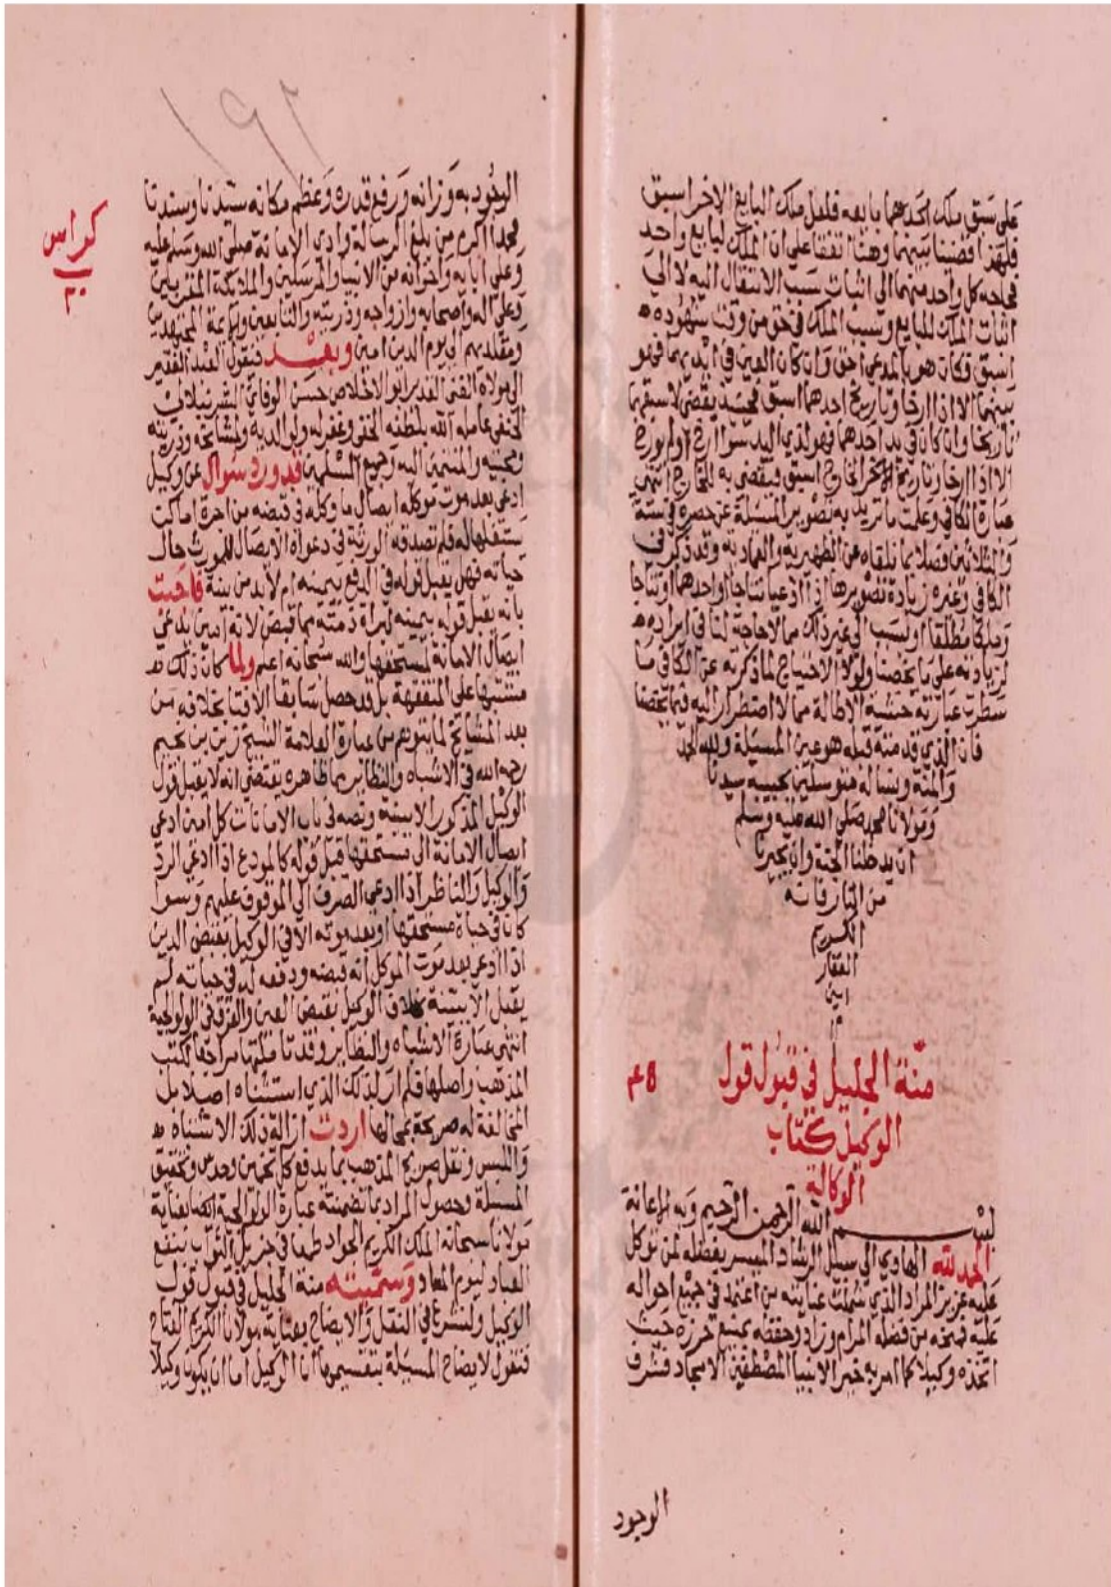 على سبق ملك احدهما بايعه فلعل ملك البايع الاخر اسبق
فلهذا قضينا بينهما وهنا اتفقا على ان الملك لبايع واحد
فحاجة كل واحد منهما الى اثبات سبب الانتقال اليه لا الى
اثبات الملك للبايع وسبب الملك في حق من وقت شهوده
اسبق فكان هو بالمدعى احق وان كان العين في ايديهما فهو
بينهما الا اذا ارخا وتاريخ احدهما اسبق فحينئذ يقضى لاسبقهما
تاريخا وان كان في يد احدهما فهو لذي اليد سوا ارخ او لم يورخ
الا اذا ارخا وتاريخ الخارج اسبق فيقضى به للخارج انتهى
عبارة الكافي وعلمت ما تريد به تصوير المسئلة عن حصره في ستة
والثلاثين فصلا بما نلقاه عن الظهيرية والعمادية وقد ذكر في
الكافي وغيره زيادة تصويرها اذا ادعيا نتاجا او احدهما نتاجا
وملكا مطلقا او لسبب الى غير ذلك مما لا حاجة لنا في ايراده
لزيادته على ما يخصنا ولولا الاحتياج لما ذكرته عن الكافي ما
سطرت عبارته خشية الاطالة مما لا اضطرار اليه فيما يخصنا
فان الذي قدمته قبله هو عين المسئلة ولله الحمد
والمنة ونساله متوسلين بحبيبه سيدنا
ومولانا محمد صلى الله عليه وسلم
ان يدخلنا الجنة وان يجيرنا
من النار فانه
الكريم
الغفار
امين
م
منة الجليل في قبول قول
الوكيل كتاب
الوكالة
بسم الله الرحمن الرحيم وبه الاعانة
الحمد لله الهادي الى سبيل الرشاد الميسر بفضله لمن توكل
عليه عزيز المراد الذي شملت عنايته من اعتمد في جميع احواله
عليه فمنحه من فضله المرام وزاد وحفظه بمنيع حرزه حيث
اتخذه وكيلا كما امر به خير الانبيا المصطفين الامجاد فشرف
الوجود
١٩٢
كراس
٢٠
الوجود به وزانه ورفع قدره وعظم مكانه سيدنا وسندنا
محمدا اكرم من بلغ الرسالة وادي الامانة صلى الله وسلم عليه
وعلى ابايه واخوانه من الانبيا والمرسلين والملايكة المقربين
وعلى اله واصحابه وازواجه وذريته والتابعين والايمة المجتهدين
ومقلديهم الى يوم الدين امين وبعد فيقول العبد الفقير
الى مولاه الغني القدير ابو الاخلاص حسن الوفائي الشرنبلالي
الحنفي عامله الله بلطفه الخفي وغفر له ولوالديه ولمشايخه وذريته
ومحبيه والمنتمين اليه وجميع المسلمين قد ورد سوال عن وكيل
ادعى بعد موت موكله ايصال ما وكله في قبضه من اجرة اماكن
يستغلها له فلم تصدقه الورثة في دعواه الايصال للمورث حال
حياته فهل يقبل قوله في الدفع بيمينه ام لا بد من بينة فاجبت
بانه يقبل قوله بيمينه لبراة ذمته مما قبض لانه امين يدعي
ايصال الامانة لمستحقها والله سبحانه اعلم ولما كان ذلك
مشتبها على المتفقهة بل قد حصل سابقا الافتا بخلافه من
بعد المشايخ لما يتوهم من عبارة العلامة الشيخ زين بن نجيم
رحمه الله في الاشباه والنظاير بما ظاهره يقتضي انه لا يقبل قول
الوكيل المذكور الا ببينة ونصه في باب الامانات كل امين ادعى
ايصال الامانة الى مستحقها قبل قوله كالمودع اذا ادعى الرد
والوكيل والناظر اذا ادعى الصرف الى الموقوف عليهم وسوا
كان في حياة مستحقها او بعد موته الا في الوكيل بقبض الدين
اذا ادعى بعد موت الموكل انه قبضه ودفعه له في حياته لم
يقبل الا ببينة بخلاف الوكيل بقبض العين والفرق في الولوالجية
انتهى عبارة الاشباه والنظاير وقد تاملتها مراجعا لكتب
المذهب واصلها فلم ار لذلك الذي استثناه اصلا بل
المخالفة له صريحة اردت ازالة ذلك الاشتباه
واللبس ونقل صريح المذهب بما يدفع كل تخمين وحدس وتحقيق
المسئلة وحصول المراد بما تضمنته عبارة الولوالجية بعناية
مولانا سبحانه الملك الكريم الجواد طمعا في جزيل الثواب بنفع
العباد ليوم المعاد وسميته منة الجليل في قبول قول
الوكيل ولنشرع في النقل والايضاح بعناية مولانا الكريم الفتاح
فنقول لايضاح المسئلة بتقسيمها ان الوكيل اما ان يكون وكيلا